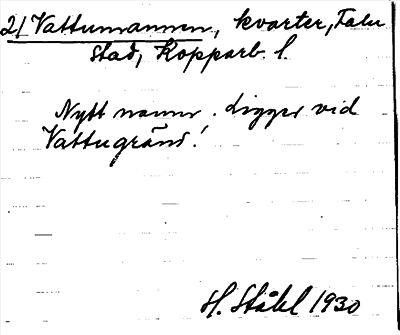 2/ Vattumannen, kvarter, Falu
stad, Kopparb. l.
Nytt namn. Ligger vid
Vattugränd!
H. Ståhl 1930